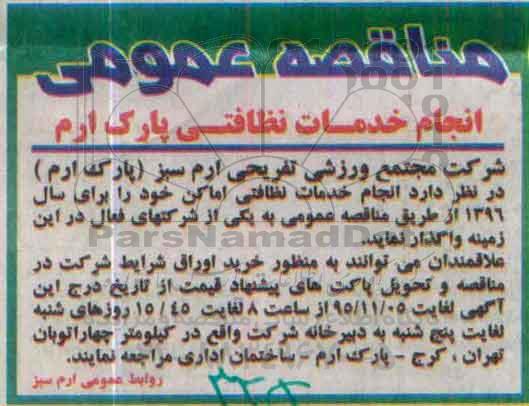 مناقصه عمومی
انجام خدمات نظافتی پارک ارم
شرکت مجتمع ورزشی تفریحی ارم سبز (پارک ارم)
در نظر دارد انجام خدمات نظافتی اماکن خود را برای سال
۱۳۹۶ از طریق مناقصه عمومی به یکی از شرکتهای فعال در این
زمینه واگذار نماید.
علاقمندان می توانند به منظور خرید اوراق شرایط شرکت در
مناقصه و تحویل پاکت های پیشنهاد قیمت از تاریخ درج این
آگهی لغایت ۹۵/۱۱/۰۵ از ساعت ۸ لغایت ۱۵/۴۵ روزهای شنبه
لغایت پنج شنبه به دبیرخانه شرکت واقع در کیلومتر چهار اتوبان
تهران ، کرج - پارک ارم - ساختمان اداری مراجعه نمایند.
روابط عمومی ارم سبز
ParsNamadData